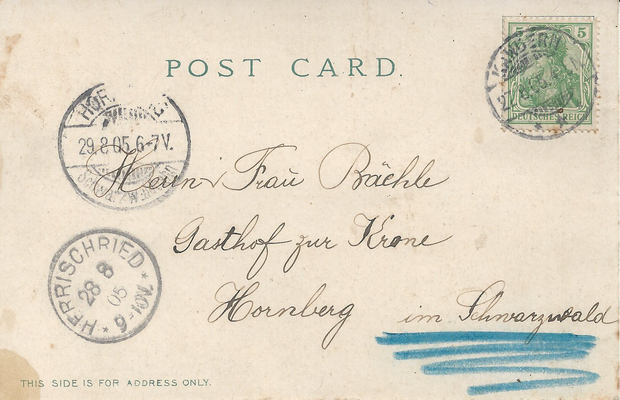 POST CARD.
5 5
KANDERN
27.8.05.
DEUTSCHES REICH
HOR
29.8.05.6-7V.
Herrn u Frau Bächle
Gasthof zur Krone
Hornberg im Schwarzwald
HERRISCHRIED
28 8
05
9-10V.
THIS SIDE IS FOR ADDRESS ONLY.